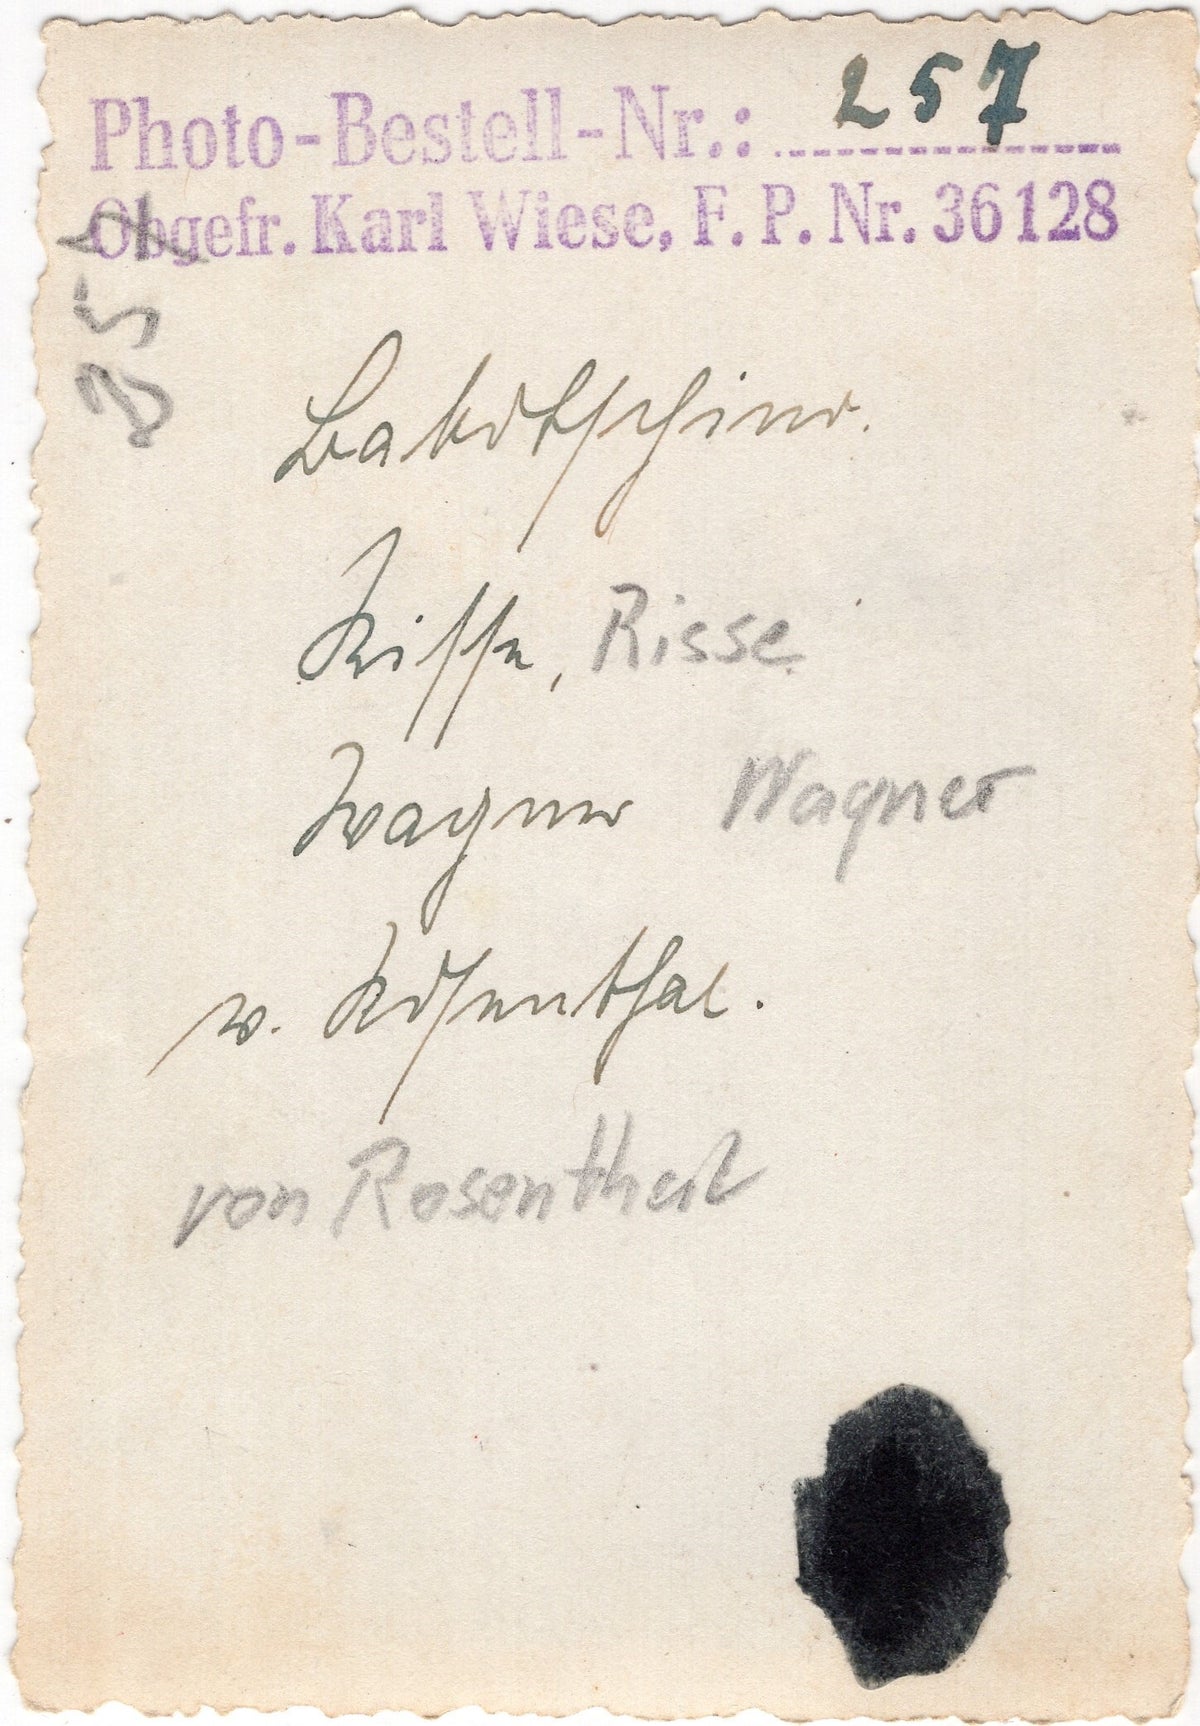 Photo-Bestell-Nr.: 257
Obgefr. Karl Wiese, F. P. Nr. 36128
257
Risse, Risse
Wagner Wagner
v. Rosenthal.
von Rosenthal